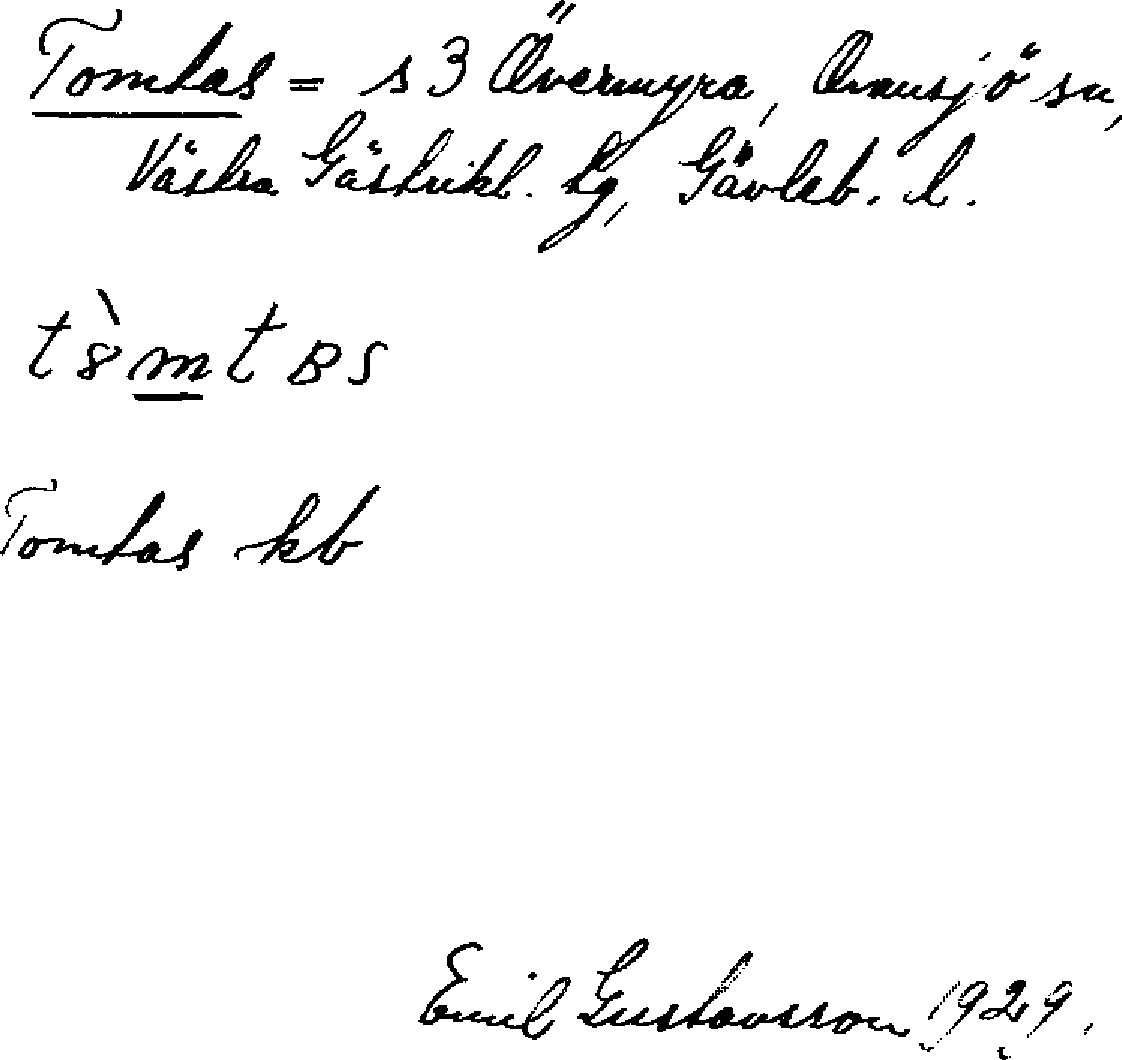 Tomtas = s 3 Övermyra, Ovansjö sn,
Västra Gästrikl. tg, Gävleb. l.
t8̀mtʙs
Tomtas kb
Emil Gustavsson 1929.